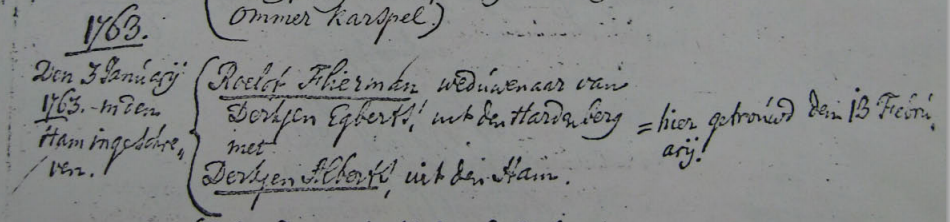 ommer Karspel.)
1763.
Den 3 Januarij
1763. in den
Ham ingeschre„
ven.
Roelof Flierman weduwenaar van
Derkjen Egberts, uit den Hardenberg
met
Derkjen Alberts, uit den Ham.
= hier getrouwd den 13 Febru„
arij.